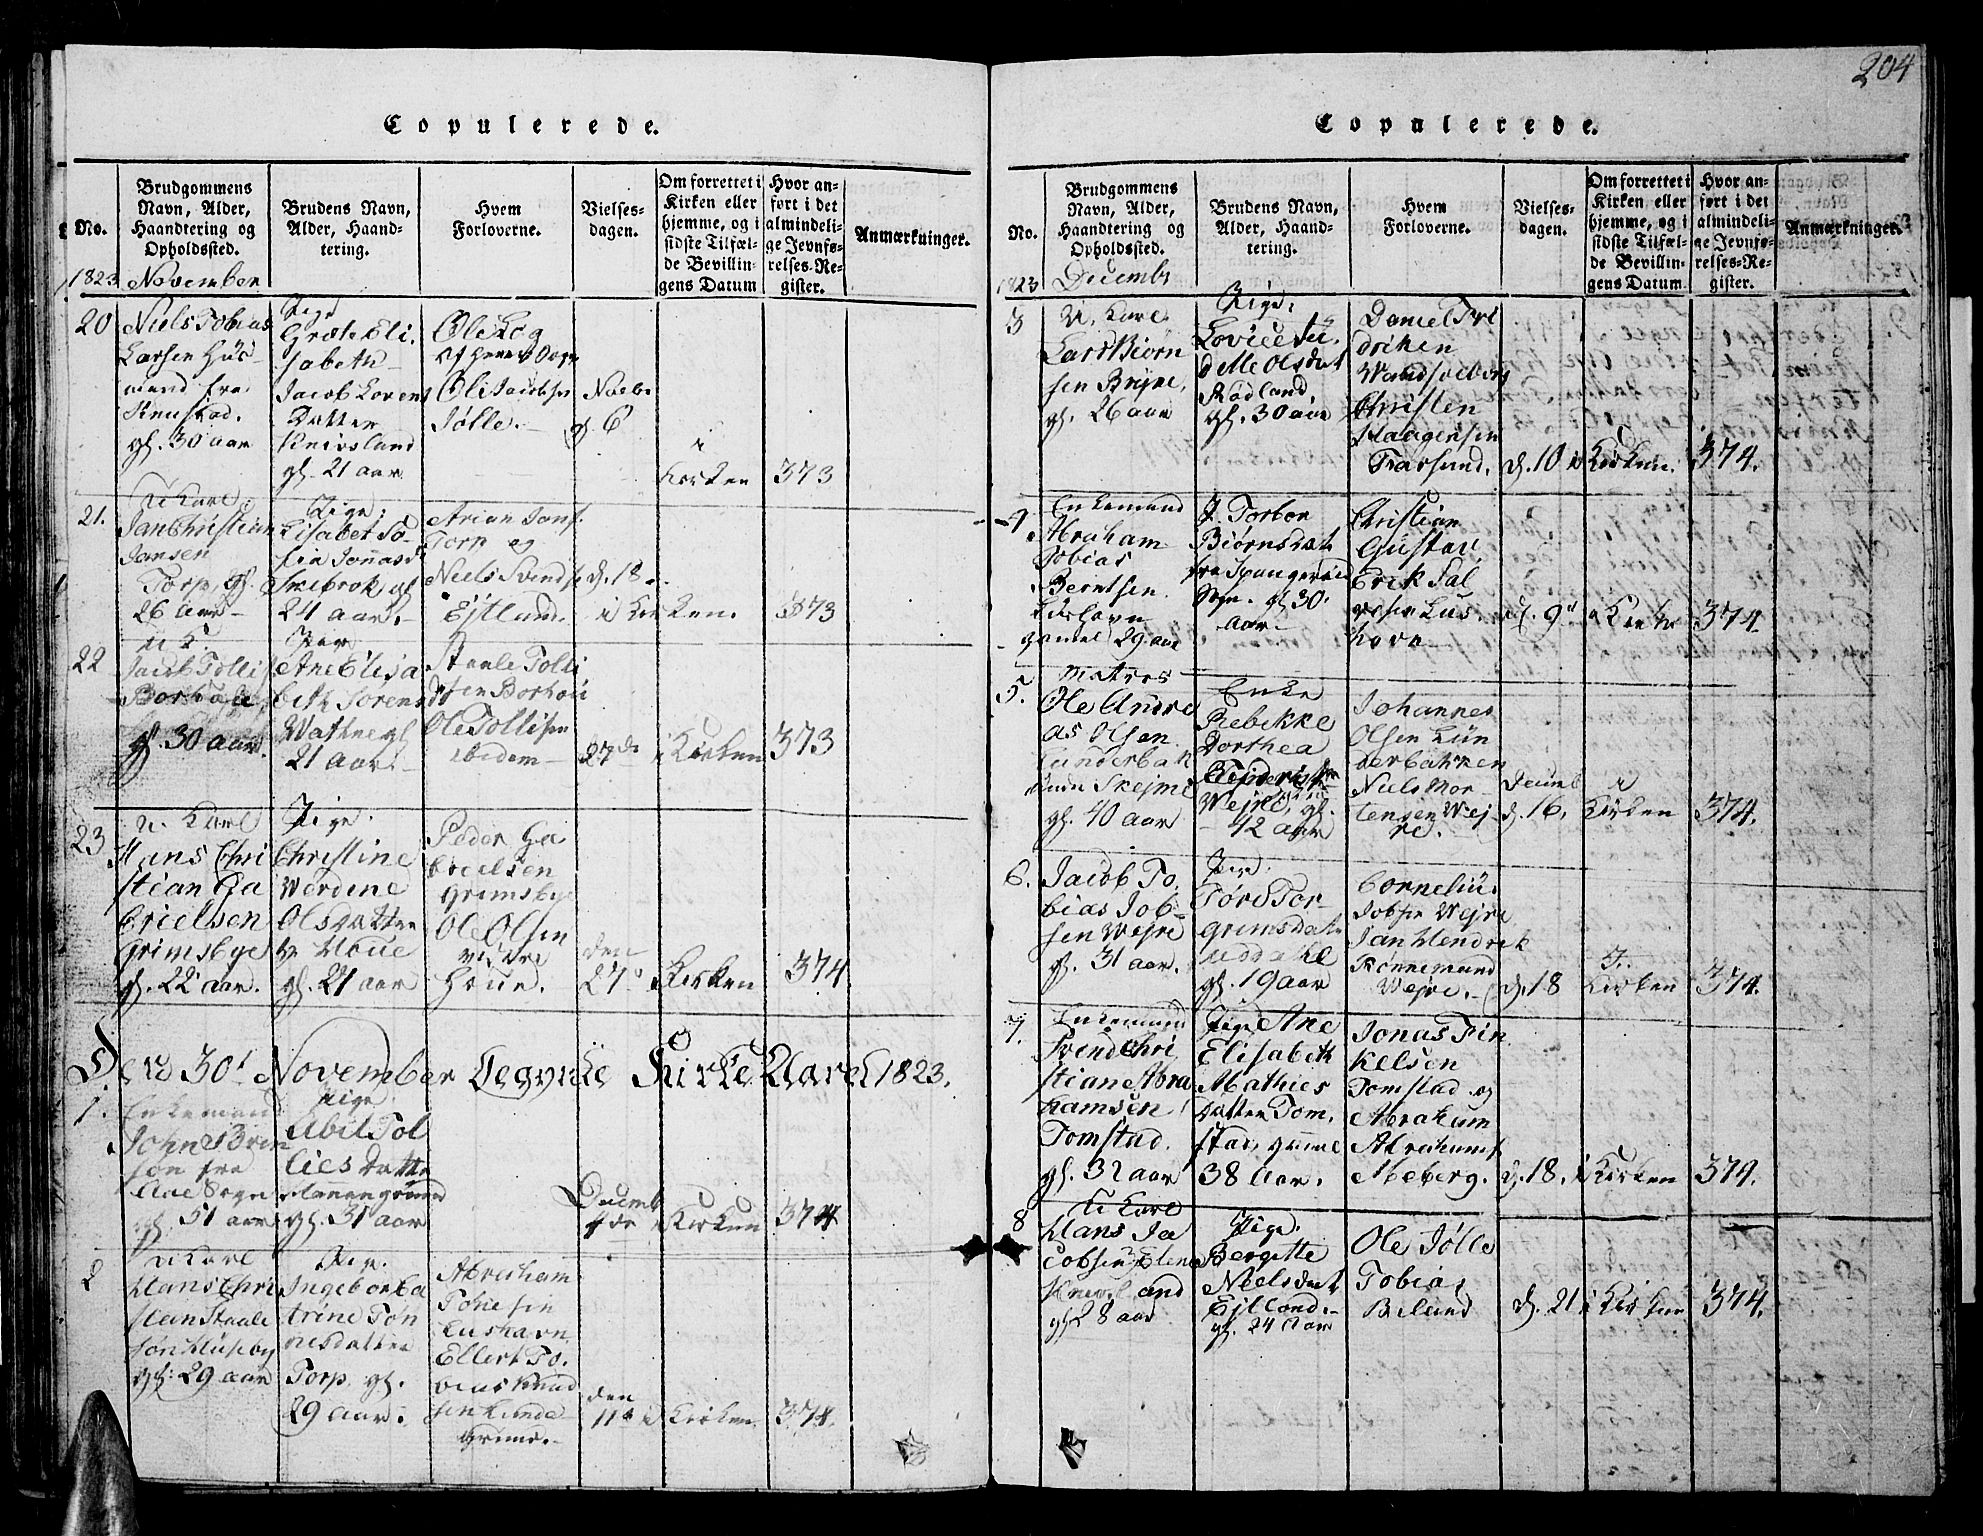 204
Copulerede.
No.
Brudgommens
Navn, Alder,
Haandtering og
Opholdssted.
Brudens Navn,
Alder, Haand-
tering.
Hvem
Forloverne.
Vielses-
dagen.
Om forrettet i
Kirken eller
hjemme, og i
sidste Tilfæl-
de Bevillin-
gens Datum
Hvor an-
ført i det
almindeli-
ge Jevnfø-
relses-Re-
gister.
Anmærkninger.
1823 November
20
Niels Tobias
Larsen Huus
mand fra
gl. 30 aar
Pige
Greth Eli-
sabeth
Jacob Lorens
Datter
Knivsland
gl. 21 aar
Ole
Ole Jacobsen
Jølle.
Novbr
d. 6
i
Kirken
373
21.
U. Karl
Jan Christian
Jansen
Torp, gl.
26 aar
Pige:
Lisabet So-
fia Jonasd
gl
24 aar.
Arian Jans.
Torp og
Niels Svends
Ejtland
d. 18
i Kirken.
373
22
U. K.
Jacob Tollis
Borhoue
gl. 30 aar
Pige
Ane Elisa
beth Sorensd
Wathne gl
21 aar
Staale Tolli
sen Borhou
Ole Tollisen
ibidem
27de
i Kirken
373
23
U. Karl
Hans Chri
stian Ga
brielsen
Grimsbye
gl. 22 aar.
Pige.
Christine
Werdine
Olsdatter
Houe
gl. 21 aar
Peder Ga
brielsen
Grimsbye
Ole Olsen
Houe.
den
27
Kirken
374
Den 30t November Begynte Kirke Aaret 1823.
1.
Enkemand
John
søn fra
Sogn
gl. 51 aar
Pige
Abel Tol
lies Datter
gl. 31 aar
Decemb
4de
i Kirken
374
2
U Karl
Hans Chri
stian Staale
søn Huseby
gl. 29 aar
Pige.
Ingebor Ca
trine Tøn
nesdatter
Torp gl.
29 aar.
Abraham
Tønesen
Lushavn
Ellert To-
bias Knud
sen
den
11te i
Kirken
374.
Copulerede.
No.
Brudgommens
Navn, Alder,
Haandtering og
Opholdssted.
Brudens Navn,
Alder, Haand-
tering.
Hvem
Forloverne.
Vielses-
dagen.
Om forrettet i
Kirken eller
hjemme, og i
sidste Tilfæl-
de Bevillin-
gens Datum
Hvor an-
ført i det
almindeli-
ge Jevnfø-
relses-Re-
gister.
Anmærkninger.
1823 Decembr
3
U. Karl
Lars Biørn
sen Bryne,
gl. 26 aar
Pige:
Lovise
Olsdat
Rødland,
gl. 30 aar
Daniel Fri
driksen
Christen
Haagensen
Farsund.
d. 10 i
Kirken.
374.
4
Enkemand
Abraham
Tobias
Berntsen
gamel 29 aar
P. Torbor
Biørnsdat
fra
Sogn. gl 30
aar.
Christian
Gustav
Erik Sal
Lus
havn
d. 9d
i Kirken
374
5.
Matros
Ole Andre
as Olsen
Lunderbak
gl. 40 aar
Enke
Rebekke
Dorthea
Wejre, gl.
42 aar
Johannes
Olsen Lun
derbakken
Niels Mor-
tensen Wej
re.
Decemb
d. 16.
i
Kirken
374.
6.
Jacob To
bias Job-
sen Wejre
gl. 31 aar.
Pige.
Tore Tor-
grimsdat
gl. 19 aar
Cornelius
Jobsen Wejre
Jan Hendrik
Rønnemand
Wejre.
d. 18
I.
Kirken
374.
7.
Enkemand
Svend Chri
stian Abra
hamsen
Tomstad.
gl. 32 aar
Pige Ane
Elisabeth
Mathies
Datter Tom-
stad, gamel
38 Aar.
Jonas Fin
kelsen
Tomstad og
Abraham
Abrahams.
Meberg.
d. 18. i
Kirken
374.
8
U Karl
Hans Ja
cobsen
gl 28 aar
Pige.
Bergitte
Nielsdat
Ejtland.
gl. 24 Aar
Ole Jølle
Tobias
Briland
d. 21
i Kirken
374.